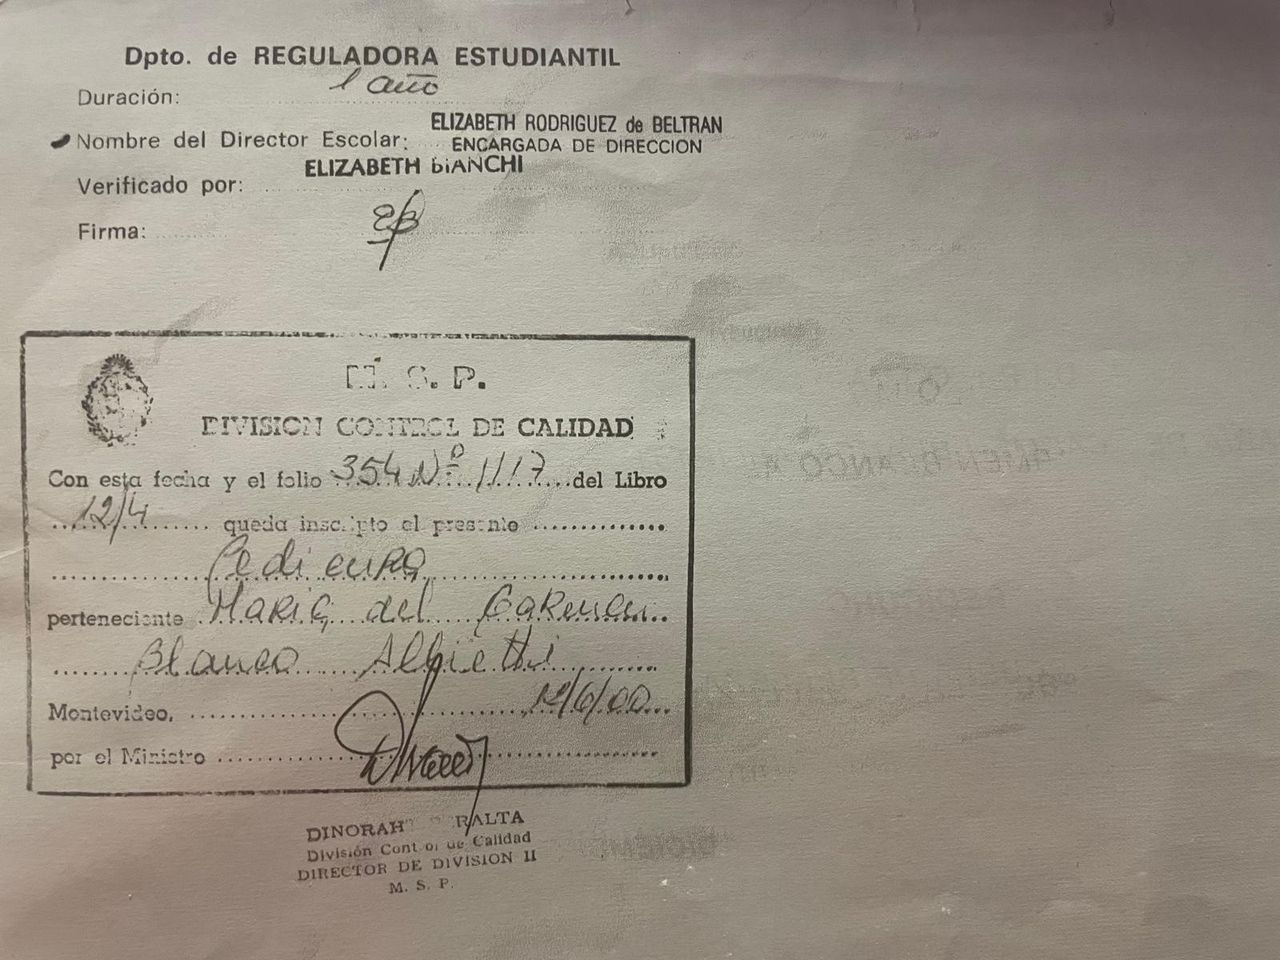 Dpto. de REGULADORA ESTUDIANTIL
Duración: 1 año
Nombre del Director Escolar: ELIZABETH RODRIGUEZ de BELTRAN
ENCARGADA DE DIRECCION
ELIZABETH BIANCHI
Verificado por:
Firma: EB
M. S. P.
DIVISION CONTROL DE CALIDAD
Con esta fecha y el folio 354 Nº 1117 del Libro
12/4 queda inscripto el presente
Pedicura
perteneciente Maria del Carmen
Blanco
Montevideo, 12/6/00
por el Ministro
DINORAH RALTA
División Control de Calidad
DIRECTOR DE DIVISION II
M. S. P.